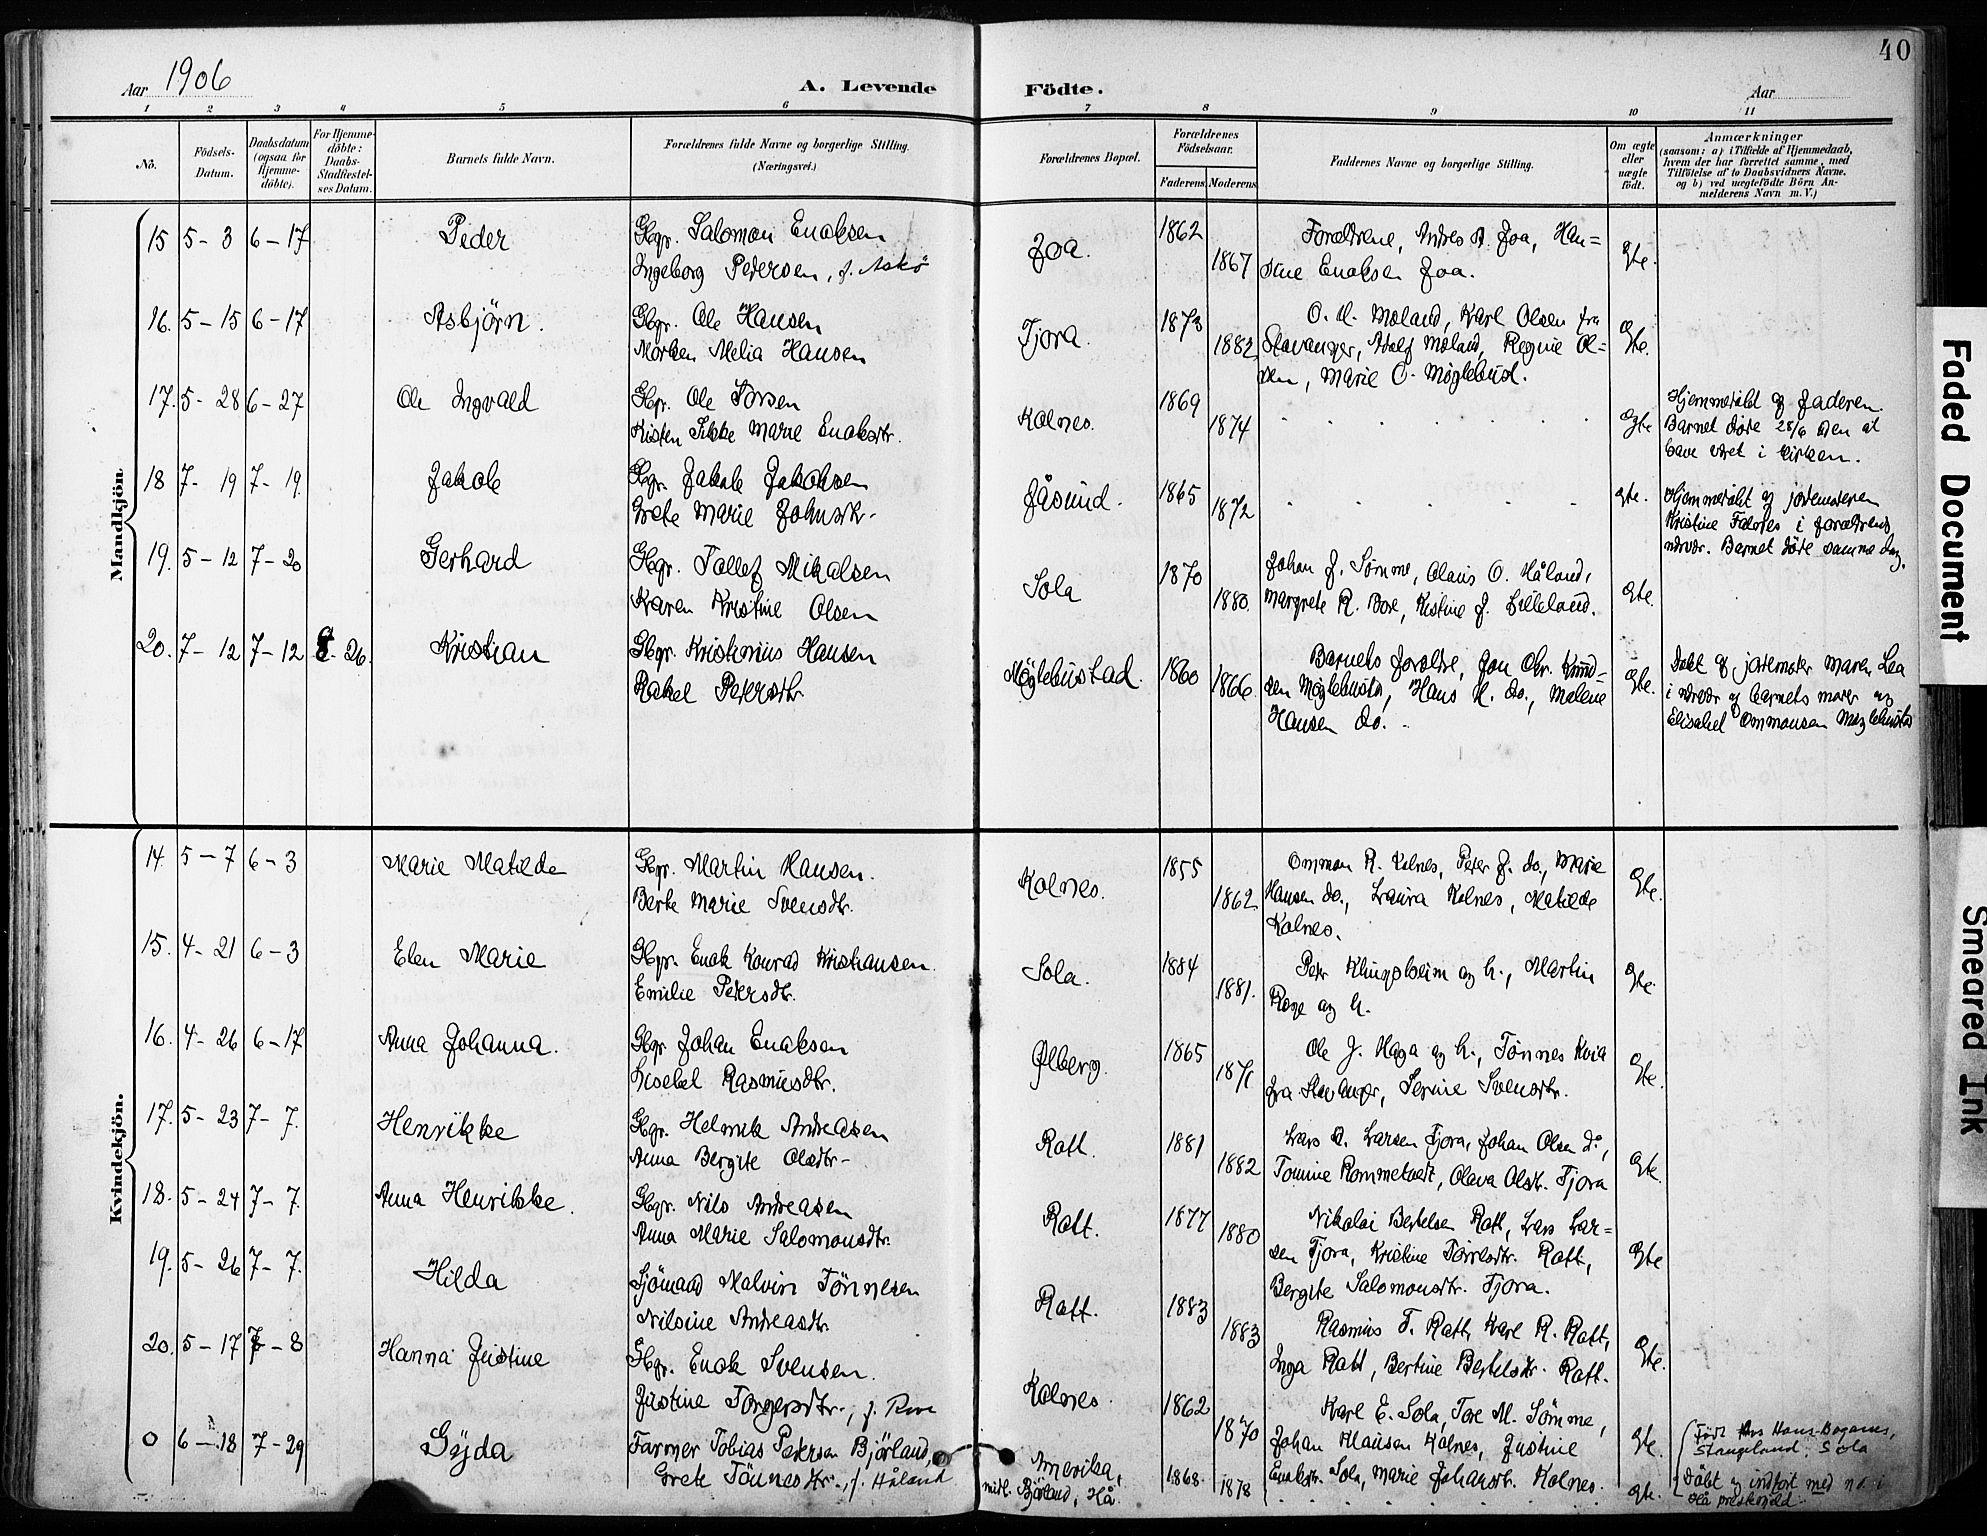 40
Aar 1906
A. Levende Födte.
Aar
1 2 3 4 5 6 7 8 9 10 11
No.
Födsels-Datum.
Daabsdatum (ogsaa for Hjemme-döbte).
For Hjemme-döbte: Daabs-Stadfæstel-ses Datum.
Barnets fulde Navn.
Forældrenes fulde Navne og borgerlige Stilling. (Næringsvei.)
Forældrenes Bopæl.
Forældrenes Födselsaar.
Faderens. Moderens.
Faddernes Navne og borgerlige Stilling.
Om ægte eller uægte födt.
Anmærkninger
(saasom: a) i Tilfælde af Hjemmedaab,
hvem der har forrettet samme, med
Tilföielse af to Daabsvidners Navne.
og b) ved uægtefödte Börn An-
melderens Navn m. V.)
Mandkjön
15 5-3 6-17 Peder
Gbgr. Salomon Enoksen
Ingeborg Pedersen, f. Askö
Joa. 1862 1867
Forældrene, Andres A. Joa, Han=
sine Enoksen Joa.
Gte.
16. 5-15 6-17 Asbjörn.
Gbgr. Ole Hansen
Morken Melia Hansen
Tjora. 1873 1882
O. H. Moland, Karl Olsen fra
Stavanger, Adolf Moland, Regine Ol=
sen, Marie O. Möglebust.
Gte.
17. 5-28 6-27 Ole Ingvald
Gbgr. Ole Torsen
Kisten Sikke Marie Enoksdtr.
Kolnes. 1869 1874
Gte
Hjemmedöbt af Faderen.
Barnet döde 28/6 uden at
have været i kirken.
18 7-19 7-19. Jakob
Gbgr. Jakob Jakobsen
Grete Marie Johnsdtr.
Jåsund. 1865 1872
gte.
Hjemmedöbt af jordemoderen
Kristine i forældrenes
nærvær. Barnet döde samme dag.
19. 5-12 7-20 Gerhard
Gbgr. Tollef Mikalsen
Karen Kristine Olsen
Sola 1870 1880.
Johan J. Sömme, Olaus O. Håland,
Margrete R. Bore, Kistine J. Lilleland.
Gte.
20. 7-12 7-12 8-26. Kristian
Gbgr. Kristinius Hansen
Rakel Petersdtr
Möglebustad. 1860 1866.
Barnets foreldre, Jon Chr. Knud-
sen Möglebustø, Hans H. do., Malene
Hansen do.
Gte.
Döbt af jordemoder Maren Lea
i nærvær af barnets moder og
Elisabet Ommonsen Møglebustø
Kvindekjön.
14. 5-7 6-3 Marie Matilde
Gbgr. Martin Hansen.
Berte Marie Svensdtr.
Kolnes. 1855 1862
Ommon R. Kolnes, Peter J. do., Marie
Hansen do., Laura Kolnes, Matilde
Kolnes.
Gte.
15. 4-21 6-3 Elen Marie
Gbgr. Enok Konrad Kristiansen.
Emilie Petersdtr.
Sola. 1884 1881.
Peter Klingsheim og h., Martin
Rege og h.
Gte.
16. 4-26 6-17 Anna Johanna.
Gbgr. Johan Enoksen
Lisebet Rasmusdtr.
Ølberg. 1865 1871
Ole J. Haga og h., Tönnes Kvia
fra Stavanger, Serine Svensdtr.
Gte.
17. 5-23 7-7. Henrikke
Gbgr. Helmik Andreasen
Anna Bergite Olsdtr.
Rott. 1881 1882
Lars A. Larsen Tjora, Johan Olsen do,
Tomine Rommetvedt, Olava Olsdtr. Tjora
Gte.
18. 5-24 7-7. Anna Henrikke.
Gbgr. Nils Andreasen
Anna Marie Salomonsdtr.
Rott. 1877 1880
Nikolai Bertelsen Rott, Lars Lar=
sen Tjora, Kristine Torresdtr. Rott,
Bergite Salomonsdtr. Tjora.
Gte
19. 5-26 7-7. Hilda
Sjömand Malvin Tönnesen
Nilsine Andreasdtr.
Rott. 1883 1883
Rasmus T. Rott, Karl R. Rott,
Inga Rott, Bertine Bertelsdtr. Rott.
Gte.
20. 5-17 7-8 Hanna Justine
Gbgr. Enok Svensen.
Justine Torgersdtr., f.
Kolnes. 1862 1870
Karl E. Sola, Tore M. Sömme,
Johan Klausen Kolnes, Justine
Enoksdtr. Sola, Marie Johansdtr. Kolnes.
Gte.
0 6-18 7-29 Gyda
Farmer Tobias Petersen Björland,
Grete Tönnesdtr., f. Håland
Amerika,
midl. Björland, Hå.
1868. 1878
Gte.
Født hos Hans
Stangeland, Sola
Døbt og indført med no. i
Hå prestegjeld.
Faded Document
Smeared Ink